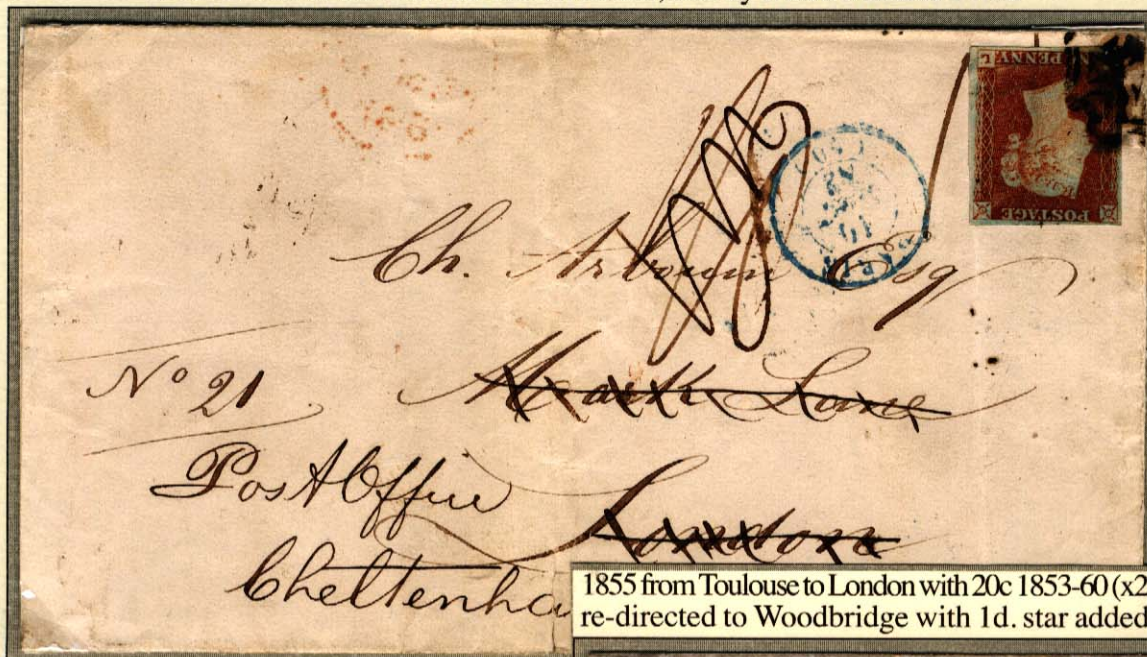 PENNY
L
POSTAGE
PARIS
Ch. Arbouin Esq
No 21 Mark Lane
Post Office
London
Chelten
1855 from Toulouse to London with 20c 1853-60 (x2
re-directed to Woodbridge with 1d. star added